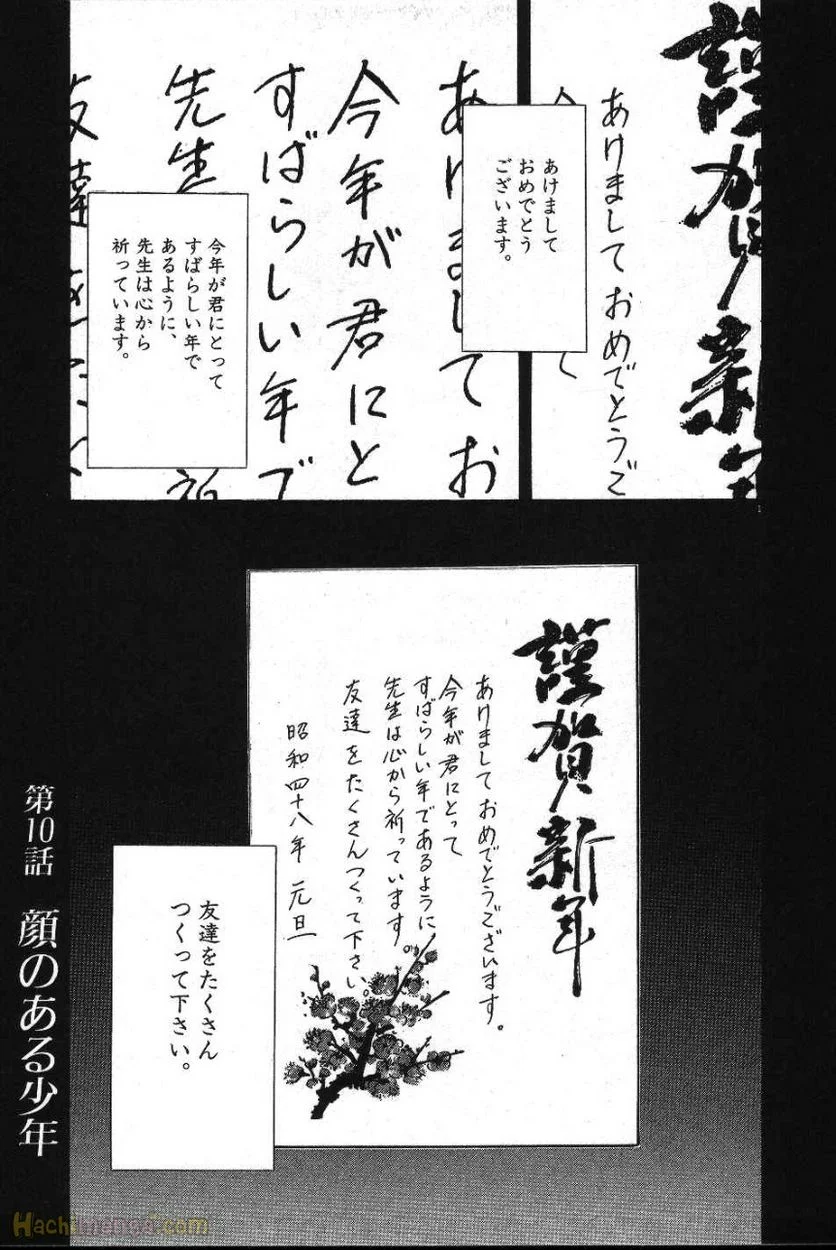 謹賀新
あけましておめでとうご
あけまして
おめでとう
ございます。
あけましてお
今年が君にと
すばらしい年で
先生
祈
友達をたく
今年が君にとって
すばらしい年で
あるように、
先生は心から
祈っています。
謹賀新年
あけましておめでとうございます。
今年が君にとって
すばらしい年であるように
先生は心から祈っています。
友達をたくさんつくって下さい。
昭和四十八年 元旦
友達をたくさん
つくって下さい。
第10話 顔のある少年
Hachimanga.com